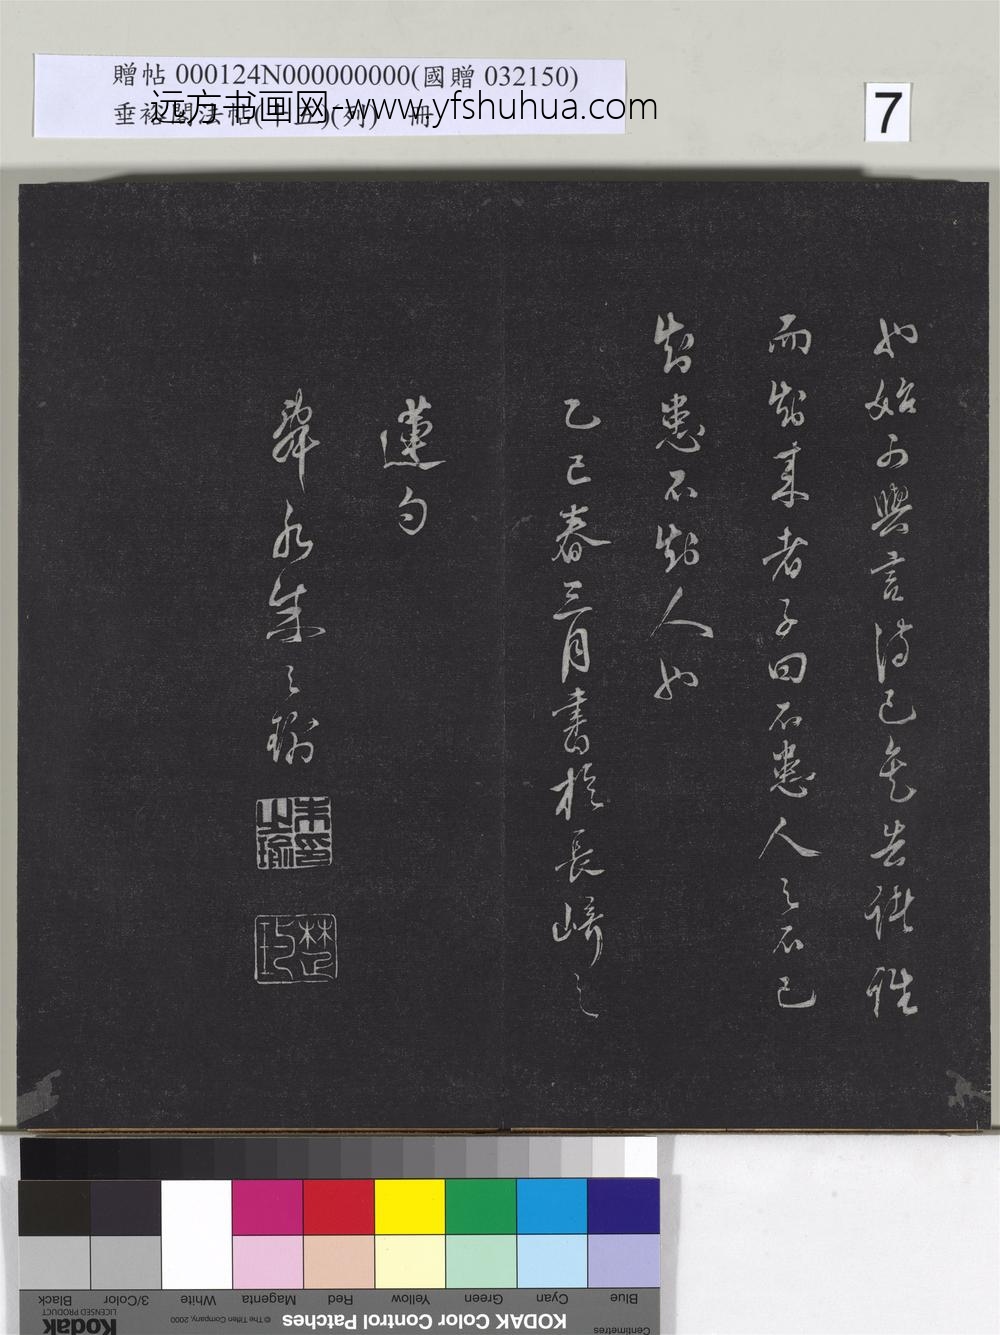 贈帖 000124N000000000(國贈 032150)
垂裕閣法帖(十五)(列)一冊
远方书画网-www.yfshuhua.com
7
也始可與言詩已矣告諸往
而知來者子曰不患人之不己
知患不知人也
乙巳春三月書於長崎之
蓮勺
舜水朱之瑜
朱印之瑜
楚
Blue Cyan Green Yellow Red Magenta White 3/Color Black
Centimetres
KODAK Color Control Patches
© The Tiffen Company, 2000
Kodak
LICENSED PRODUCT